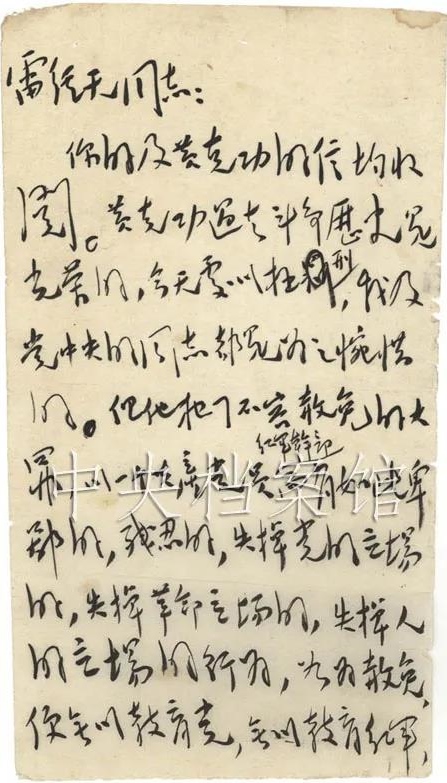 雷经天同志:
你的及黄克功的信均收
阅。黄克功过去斗争歷史是
光荣的,今天处以极刑,我及
党中央的同志都是为之惋惜
的。但他犯了不容赦免的大
罪,以一个共产党员红军幹部而有如此卑
鄙的,残忍的,失掉党的立场
的,失掉革命立场的,失掉人
的立场的行为,如为赦免,
便无以教育党,无以教育红军,
中央档案馆